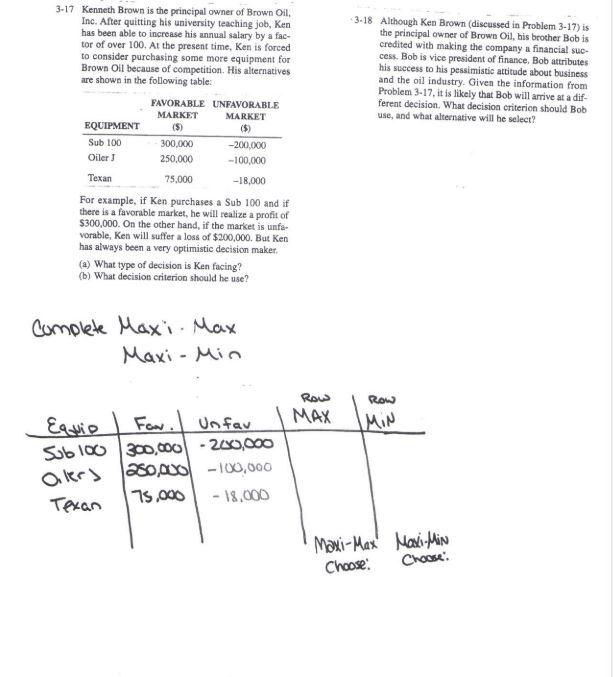 3-17 Kenneth Brown is the principal owner of Brown Oil,
Inc. After quitting his university teaching job, Ken
has been able to increase his annual salary by a fac-
tor of over 100. At the present time, Ken is forced
to consider purchasing some more equipment for
Brown Oil because of competition. His alternatives
are shown in the following table:
FAVORABLE UNFAVORABLE
MARKET MARKET
EQUIPMENT ($) ($)
Sub 100 300,000 -200,000
Oiler J 250,000 -100,000
Texan 75,000 -18,000
For example, if Ken purchases a Sub 100 and if
there is a favorable market, he will realize a profit of
$300,000. On the other hand, if the market is unfa-
vorable, Ken will suffer a loss of $200,000. But Ken
has always been a very optimistic decision maker.
(a) What type of decision is Ken facing?
(b) What decision criterion should he use?
3-18 Although Ken Brown (discussed in Problem 3-17) is
the principal owner of Brown Oil, his brother Bob is
credited with making the company a financial suc-
cess. Bob is vice president of finance. Bob attributes
his success to his pessimistic attitude about business
and the oil industry. Given the information from
Problem 3-17, it is likely that Bob will arrive at a dif-
ferent decision. What decision criterion should Bob
use, and what alternative will he select?
Complete Maxi - Max
Maxi - Min
Row Row
Equip Fav. Unfav MAX MIN
Sub 100 300,000 -200,000
Oiler J 250,000 -100,000
Texan 75,000 -18,000
Maxi-Max Maxi-Min
Choose: Choose: